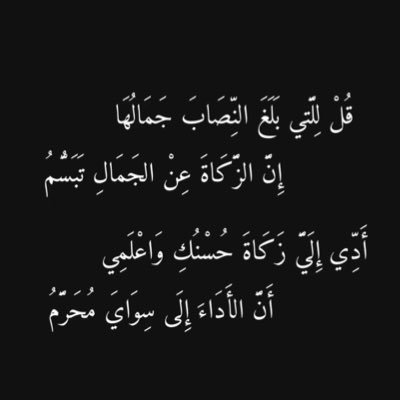 قُلْ لِلَّتي بَلَغَ النِّصَابَ جَمَالُهَا
إِنَّ الزَّكَاةَ عِنْ الجَمَالِ تَبَسُّمُ
أَدِّي إِلَيَّ زَكَاةَ حُسْنُكِ وَاعْلَمِي
أَنَّ الأَدَاءَ إِلَى سِوَايَ مُحَرَّمُ